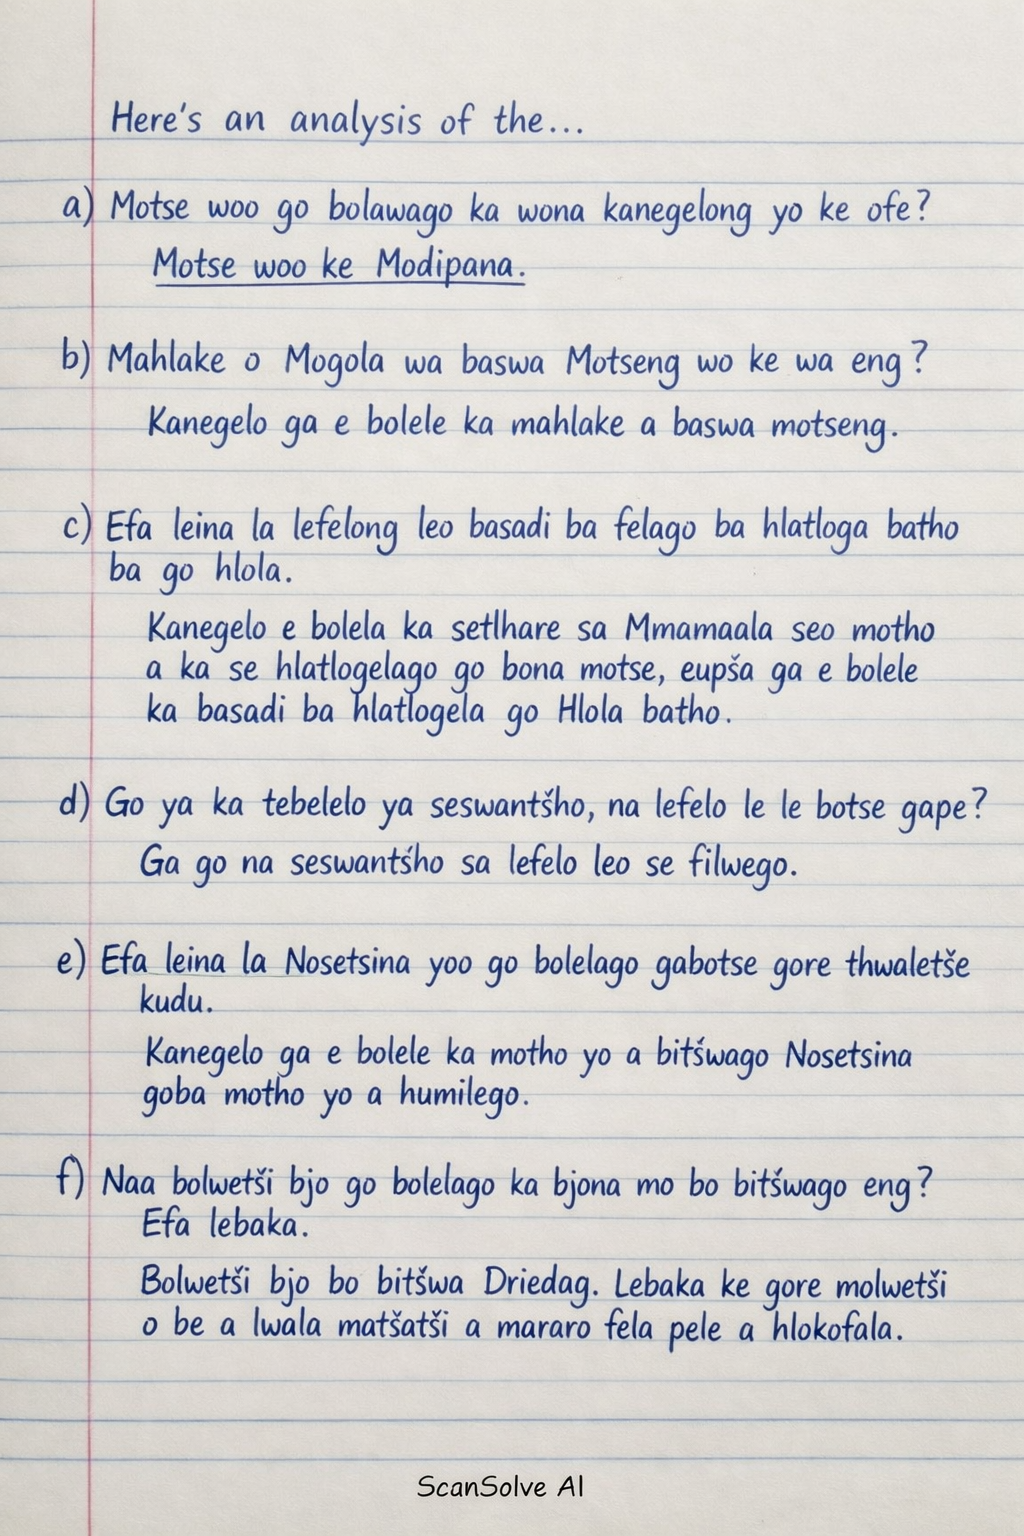 Here's an analysis of the...
a) Motse woo go bolawago ka wona kanegelong yo ke ofe?
Motse woo ke Modipana.
b) Mahlake o Mogola wa baswa Motseng wo ke wa eng?
Kanegelo ga e bolele ka mahlake a baswa motseng.
c) Efa leina la lefelong leo basadi ba felago ba hlatloga batho
ba go hlola.
Kanegelo e bolela ka setlhare sa Mmamaala seo motho
a ka se hlatlogelago go bona motse, eupša ga e bolele
ka basadi ba hlatlogela go Hlola batho.
d) Go ya ka tebelelo ya seswantšho, na lefelo le le botse gape?
Ga go na seswantšho sa lefelo leo se filwego.
e) Efa leina la Nosetsina yoo go bolelago gabotse gore thwaletše
kudu.
Kanegelo ga e bolele ka motho yo a bitšwago Nosetsina
goba motho yo a humilego.
f) Naa bolwetši bjo go bolelago ka bjona mo bo bitšwago eng?
Efa lebaka.
Bolwetši bjo bo bitšwa Driedag. Lebaka ke gore molwetši
o be a lwala matšatši a mararo fela pele a hlokofala.
ScanSolve AI